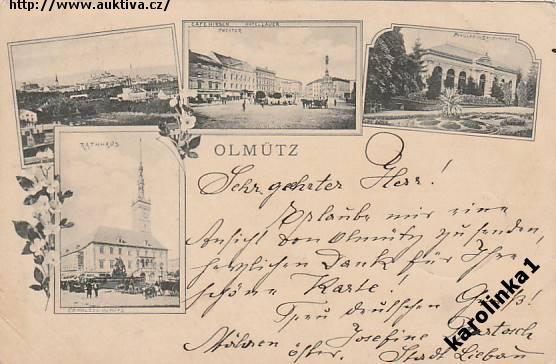 http://www.auktiva.cz/
CAFE HIRSCH HOTEL LAUER
THEATER
RATHHAUS
OLMÜTZ
Sehr geehrter Herr!
Erlaube mir eine
Ansicht von Olmütz zu senden,
herzlichen Dank für Ihre
schöne Karte!
Treu deutschen Gruß!
Josefine Bartosch
Mähren Stadt Liebau
öster.
karolinka1